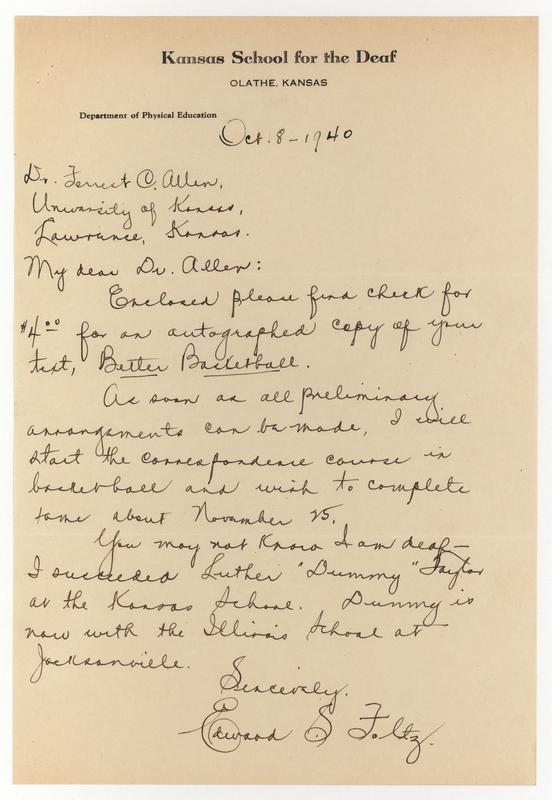 Kansas School for the Deaf
OLATHE, KANSAS
Department of Physical Education
Oct. 8 - 1940
Dr. Forrest C. Allen,
University of Kansas,
Lawrence, Kansas.
My dear Dr. Allen:
Enclosed please find check for
$4.00 for an autographed copy of your
text, Better Basketball.
As soon as all preliminary
arrangements can be made, I will
start the correspondence course in
basketball and wish to complete
same about November 25.
You may not know I am deaf—
I succeeded Luther "Dummy" Taylor
at the Kansas School. Dummy is
now with the Illinois School at
Jacksonville.
Sincerely,
Edward S. Foltz.